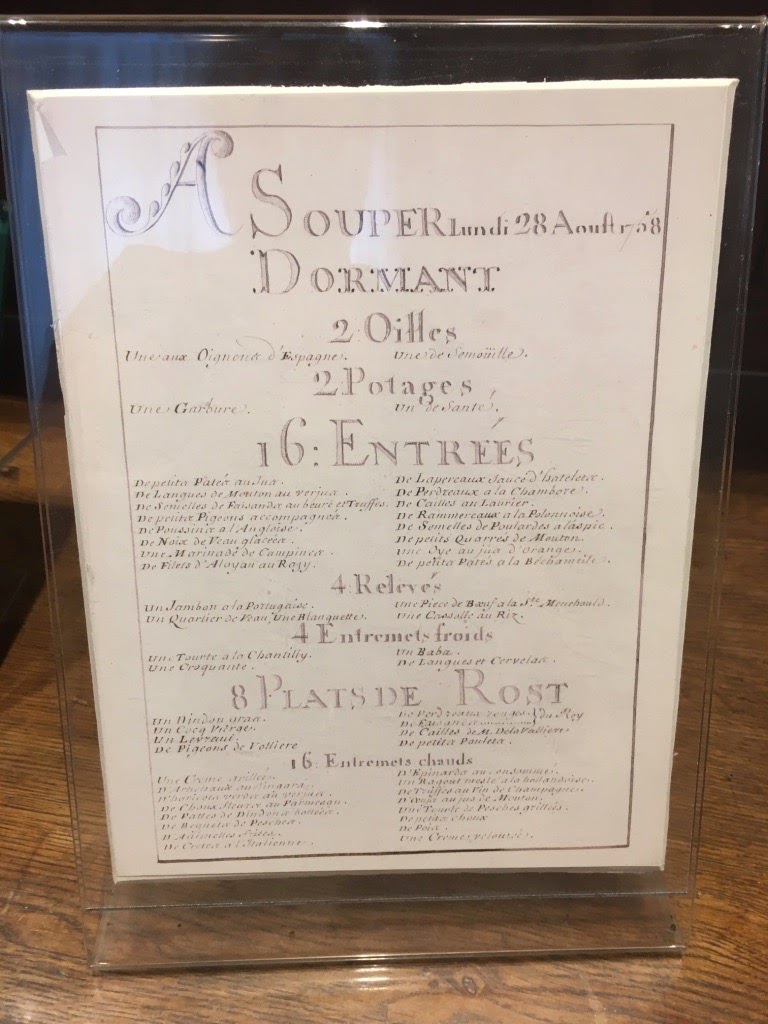 A SOUPER Lundi 28 Aoust 1758
DORMANT
2 Oilles
Une aux Oignons d'Espagne. Une de Semoüille.
2 Potages
Une Garbure. Un de Santé.
16: ENTRÉES
De petits Patés au Jus. De Lapereaux Sauce d'hatelets.
De Langues de Mouton au verjus. De Perdreaux a la Chambore.
De Semelles de Faisands au beuré et Truffes. De Cailles au Laurier.
De petits Pigeons accompagnés. De Rammereaux a la Polonnoise.
De Poussins a l'Angloise. De Semelles de Poulardes a laspic.
De Noix de Veau glacées. De petits Quarrés de Mouton.
Une Marinade de Campines. Une Oye au jus d'Orange.
De Filets d'Aloyau au Rozy. De petits Patés a la Béchamelle.
4 Relevés
Un Jambon a la Portugaise. Une Piece de Bœuf a la Ste. Menehould.
Un Quartier de Veau, Une Blanquette. Une Cassolle au Riz.
4 Entremets froids
Une Tourte a la Chantilly. Un Baba.
Une Croquante. De Langues et Cervelas.
8 PLATS DE ROST
Un Dindon gras. De Perdreaux rouges } du Roy
Un Cocq Vierge. De
Un Levreau. De Cailles de M. De la Valliere
De Pigeons de Volliere De petits Poulets.
16: Entremets chauds
Une Créme grillée. D'Epinards au consommé.
D'Artichaux au Singara. Un Ragout meslé a la hollandoise.
D'haricots verds au verjus. De Truffes au Vin de Champagne.
De Choux fleurs au Parmesan. D'Œufs au jus de Mouton.
De Pattes de Dindons bottées. Une Tourte de Pesches grillées.
De Begnets de Pesches. De petits choux
De Pois.
De Cretes a l'Italienne. Une Creme veloutée.